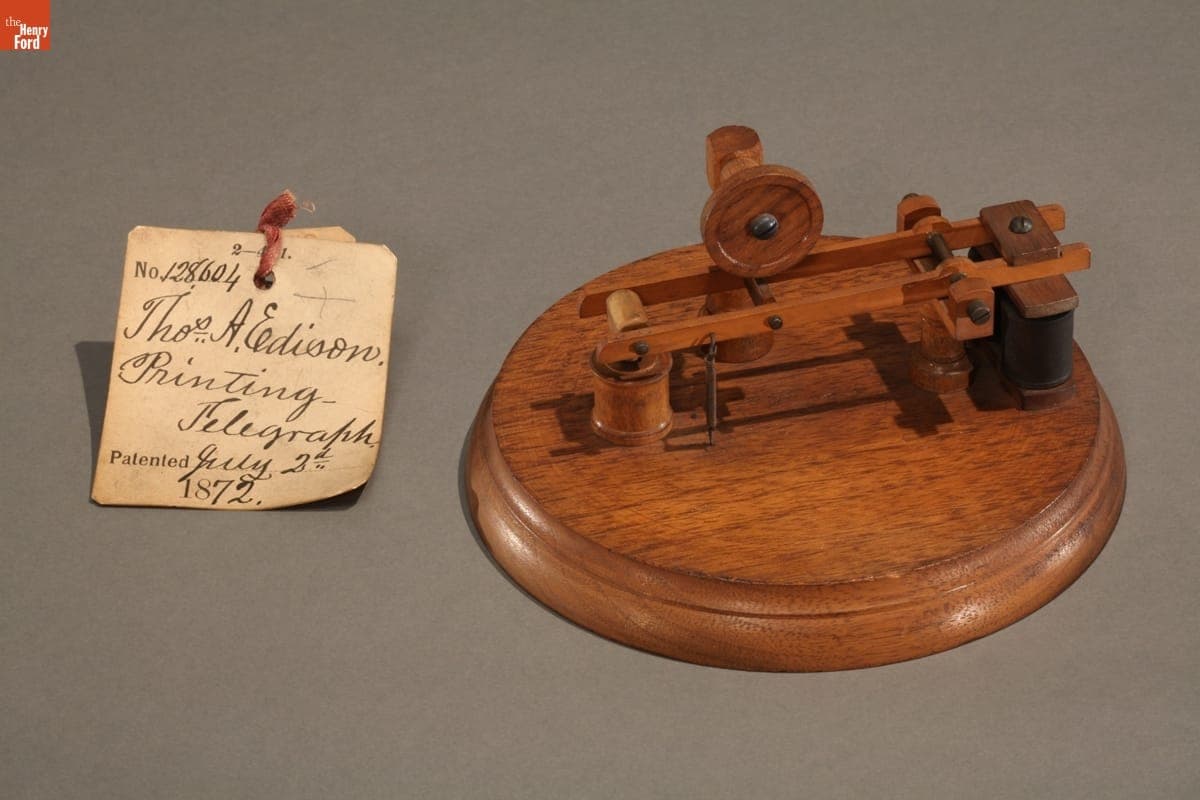 the
Henry
Ford
No. 128,604
Thos. A. Edison.
Printing-
Telegraph.
Patented July 2d
1872.